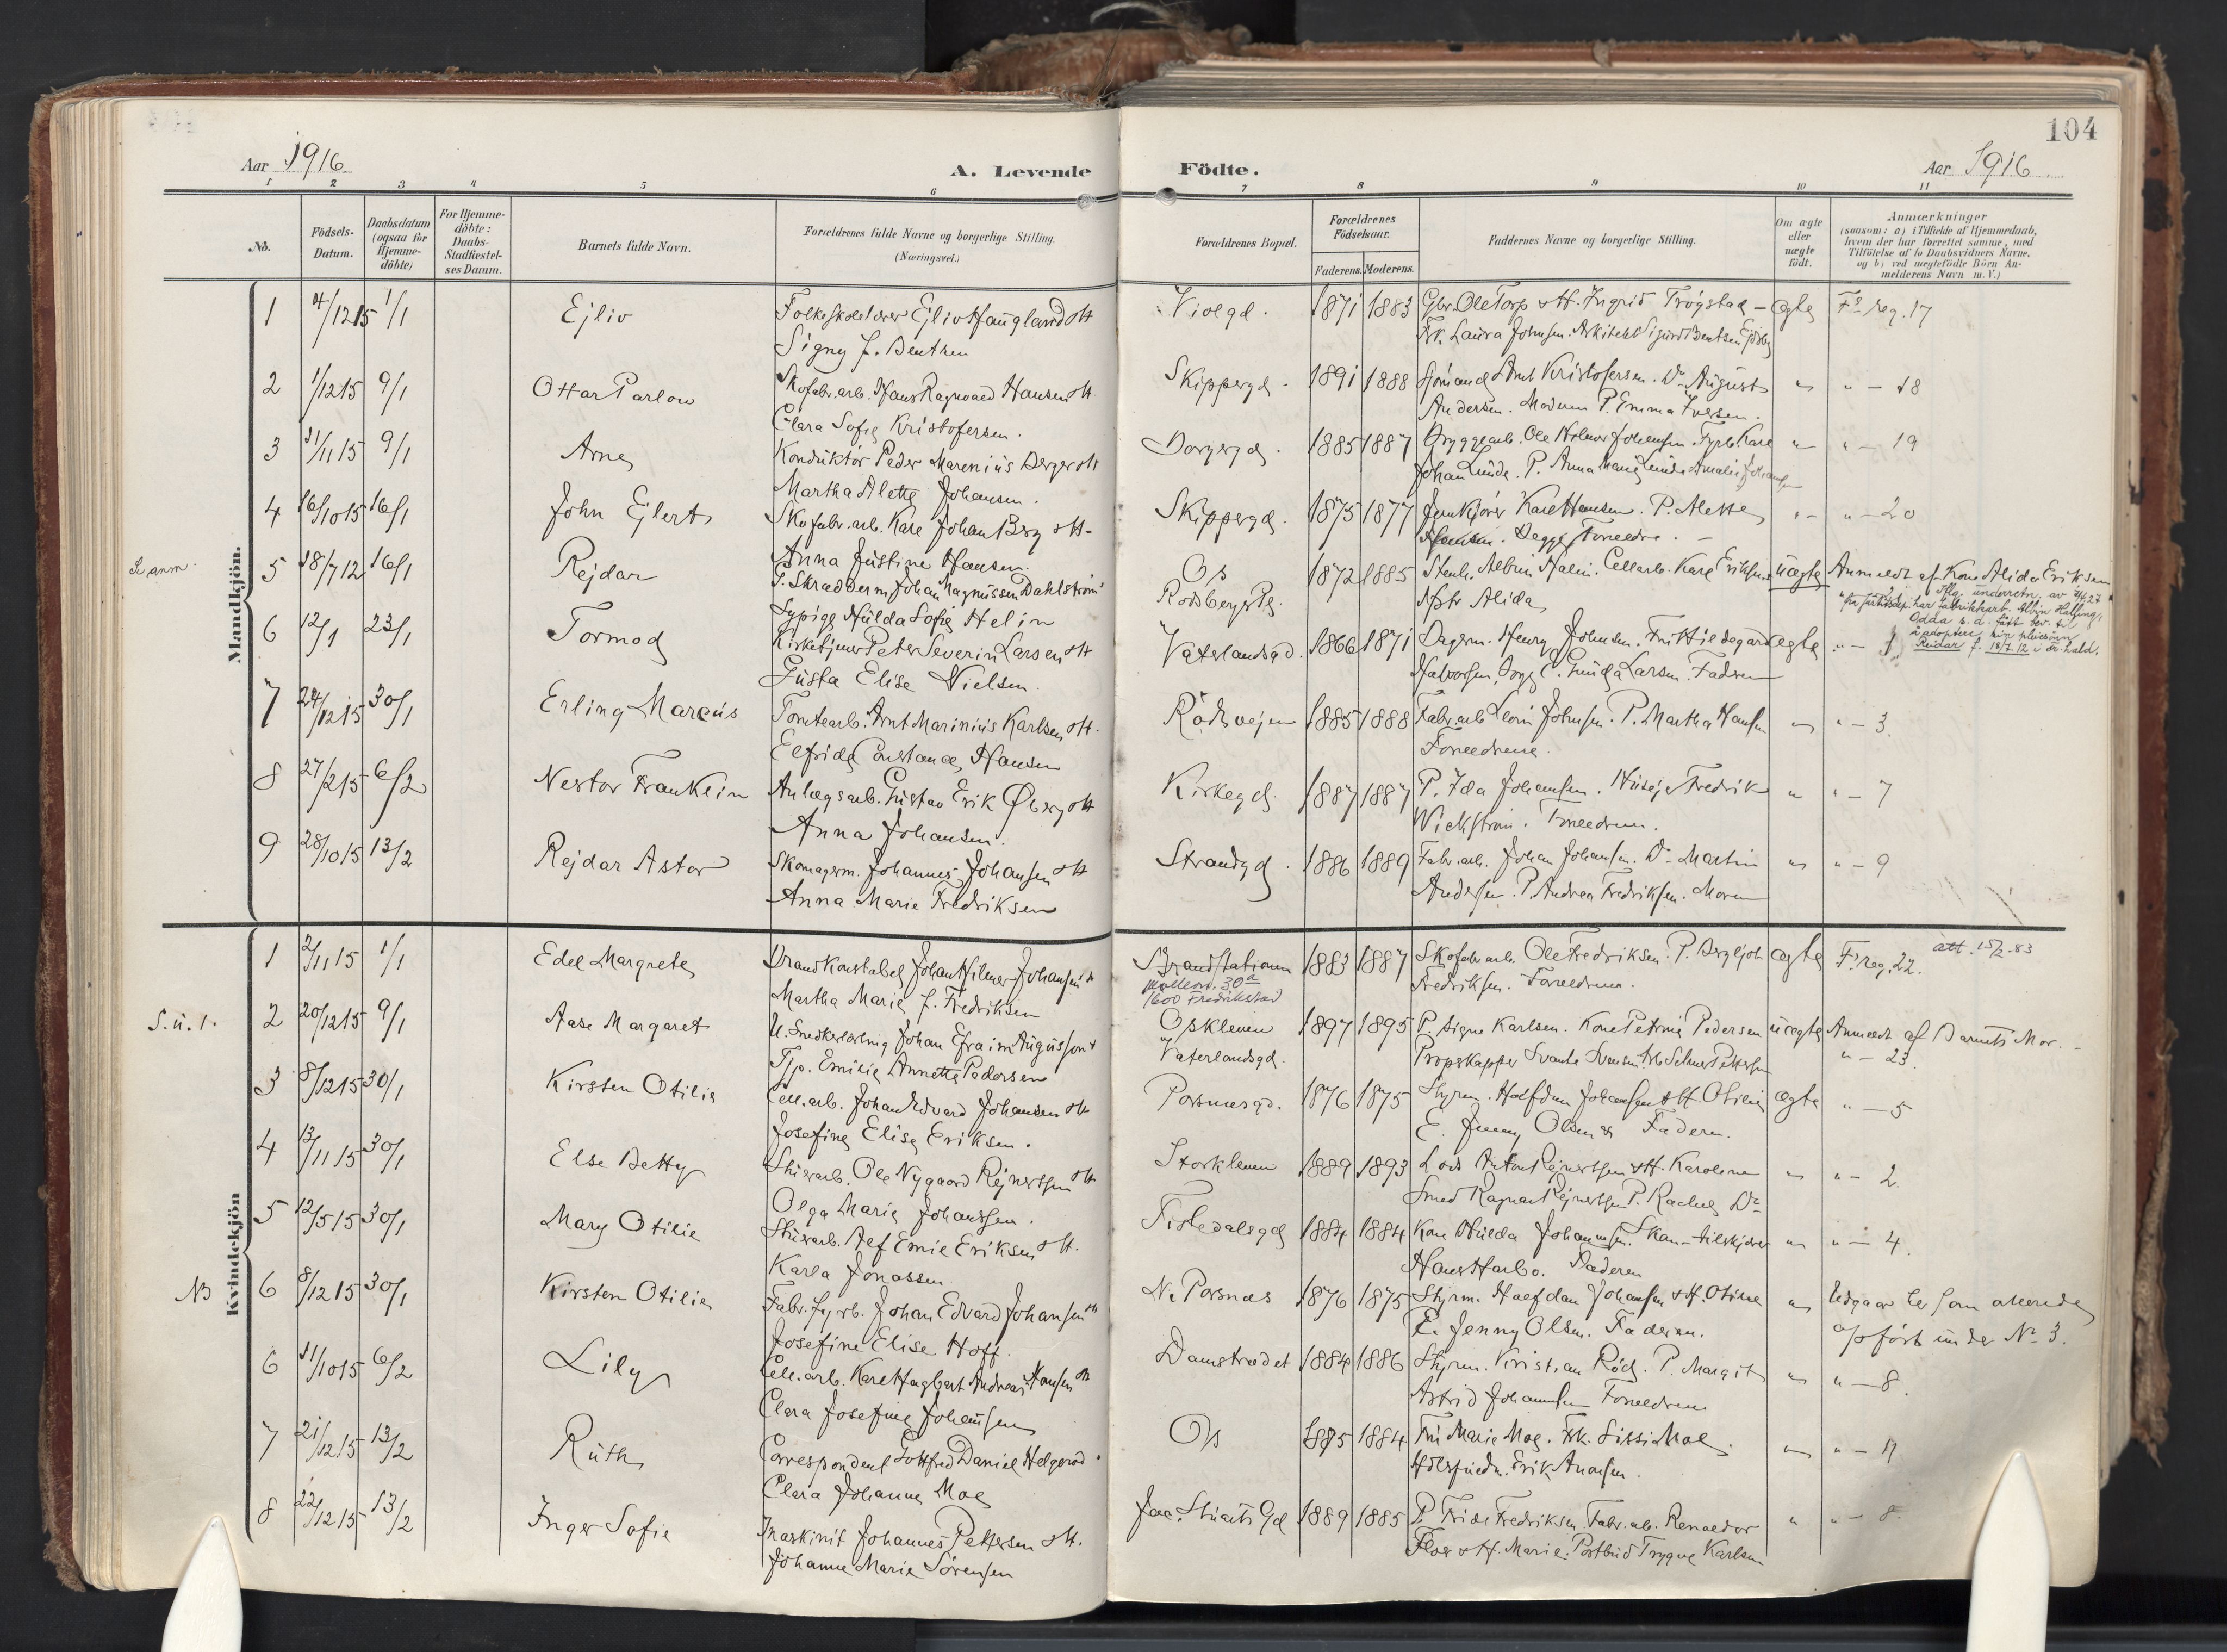 104
Aar 1916
A. Levende
Födte.
Aar 1916
1 2 3 4 5 6 7 8 9 10 11
No.
Födsels-
Datum.
Daabsdatum
(ogsaa for
Hjemme-
döbte)
For Hjemme-
döbte:
Daabs-
Stadfæstel-
ses Datum.
Barnets fulde Navn.
Forældrenes fulde Navne og borgerlige Stilling.
(Næringsvei.)
Forældrenes Bopæl.
Forældrenes
Födselsaar.
Faderens. Moderens.
Faddernes Navne og borgerlige Stilling.
Om ægte
eller
uægte
födt.
Anmærkninger
(saasom: a) i Tilfælde af Hjemmedaab,
hvem der har forrettet samme, med
Tilföielse af to Daabsvidners Navne,
og b) ved uægtefödte Börn An-
melderens Navn m. V.)
Mandkjön.
1 4/12 15 1/1 Ejliv Folkeskolelærer Ejliv Haugland oH Violgd. 1871 1883 Gbr. Ole Torp & H. Ingrid Trögstad ægte Fs reg. 17
Signy f. Bentzen Frk. Laura Johnsen. Arkitekt Sigurd Bentsen
2 1/12 15 9/1 Ottar Parlow Skofabr.arb. Hans Ragnvald Hansen oH Skippergd. 1891 1888 Sjömand Arnt Kristofersen. Do August " " — 18
Clara Sofie Kristofersen. Andersen. Moderen P. Emma Iversen.
3 21/11 15 9/1 Arne Konduktör Peder Marenius Berger oH Borgergd. 1885 1887 Bryggearb. Ole Hilmar Johansen. Fyrb. Karl " " — 19
Martha Alette Johansen. Johan Lunde. P. Anna Marie Lunde Amalie Johansen
4 16/10 15 16/1 John Ejlert Skofabr.arb. Karl Johan Berg oH Skippergd. 1875 1877 Karl Hansen. P. Alette " " — 20
Anna Justine Hansen. Hansen. Begge Forældre.
Se anm. 5 18/7 12 16/1 Rejdar F. Skræddersm. Johan Magnussen Dahlström Os 1872 1885 Stenh. Albin Halin. Cellarb. Karl Eriksen uægte Anmeldt af Kone Alida Eriksen
Sypige Hulda Sofie Helin Rödsbergg. Hstr Alida
Iflg. underretn. av 7/4.27
fra justitsdep. har fabrikkarb. Albin Halling,
Odda s. d. fått bev. til
å adoptere sin pleiesönn
Reidar f. 18/7.12 i Fr.hald.
6 12/1 23/1 Tormod Kirketjener Peter Severin Larsen oH Vaterlandsgd. 1866 1871 Bagerm. Henry Johnsen. Fru Hildegard ægte " — 1
Gusta Elise Nielsen. Halvorsen, E. Gunda Larsen. Fadren
7 24/12 15 30/1 Erling Marcus Tomtearb. Arnt Marinius Karlsen oH. Rödsvejen 1885 1888 Fabr.arb. Johnsen. P. Martha Hansen " " — 3.
Elfrida Constance Hansen Forældrene.
8 27/12 15 6/2 Nestor Franklin Anlægsarb. Gustav Erik Öberg oH Kirkegd. 1887 1887 P. Ida Johansen. Huseje Fredrik " " — 7
Anna Johansen. Wickström. Forældrene.
9 28/10 15 13/2 Rejdar Astor Skomagerm. Johannes Johansen oH Strandgd. 1886 1889 Fabr.arb. Johan Johansen. Do Martin " " — 9
Anna Marie Fredriksen Andersen. P. Andrea Fredriksen. Moren
Kvindekjön
1 2/11 15 1/1 Edel Margrete Brandkonstabel Johan Hilmar Johansen oH Brandstationen 1883 1887 Skofabr.arb. Ole Fredriksen. P. Bergljot ægte Fs reg. 22. att. 15/2.83
Martha Marie f. Fredriksen 30a Fredriksen. Forældrene.
1600 Fredrikstad
S. u. 1. 2 20/12 15 9/1 Aase Margaret U. Smedkerlærling Johan Efraim Augusson Oskleven 1897 1895 P. Signe Karlsen. Kone Petrine Pedersen uægte Anmeldt af Barnets Mor.
Tjp. Emilie Annette Pedersen Vaterlandsgd. Svante Svensen. Arb. Selmer Pettersen " — 23.
3 8/12 15 30/1 Kirsten Otilie Cell.arb. Johan Edvard Johansen oH Porsnesgd. 1876 1875 Styrm. Halfdan Johansen & H. Otilie ægte " — 5
Josefine Elise Eriksen. E. Jenny Olsen & Faderen.
4 13/11 15 30/1 Else Betty Stuerarb. Ole Nygaard Rejnertsen oH Storkleven 1889 1893 Lods Anton Rejnertsen & H. Karoline " " — 2.
Olga Marie Johanssen. Smed Ragnar Rejnertsen P. Rachel Do
5 12/5 15 30/1 Mary Otilie Stuerarb. Alf Emil Eriksen oH. Tistedalsgd 1884 1884 Kone Hulda Johannesen. " " — 4.
Karla Jonassen Hans Harbo. Faderen
NB 6 8/12 15 30/1 Kirsten Otilie Fabr.fyrb. Johan Edvard Johansen oH N. Porsnæs 1876 1875 Styrm. Halfdan Johansen & H. Otilie " Udgaar her som allerede
Josefine Elise Hoff. E. Jenny Olsen. Faderen. opfört under No 3.
6 11/10 15 6/2 Lily Cell.arb. Karl Hagbart Andreas Hansen oH Damstrædet 1884 1886 Styrm. Kristian Röd. P. Margit " " — 8.
Clara Josefine Johansen Astrid Johannsen Forældrene
7 21/12 15 13/2 Ruth Correspondent Gottfred Daniel Helgerød Os 1885 1884 Fru Marie Moe. Frk. Sissi Moe. " " — 11
Clara Johanne Moe Erik Aronsen.
8 22/12 15 13/2 Inger Sofie Maskinist Johannes Pettersen oH. Jac. Stuarts Gd 1889 1885 P. Frida Fredriksen. Fabr.arb. Renaldor " " — 8.
Johanne Marie Sörensen Floer & H. Marie. Postbud Trygve Karlsen